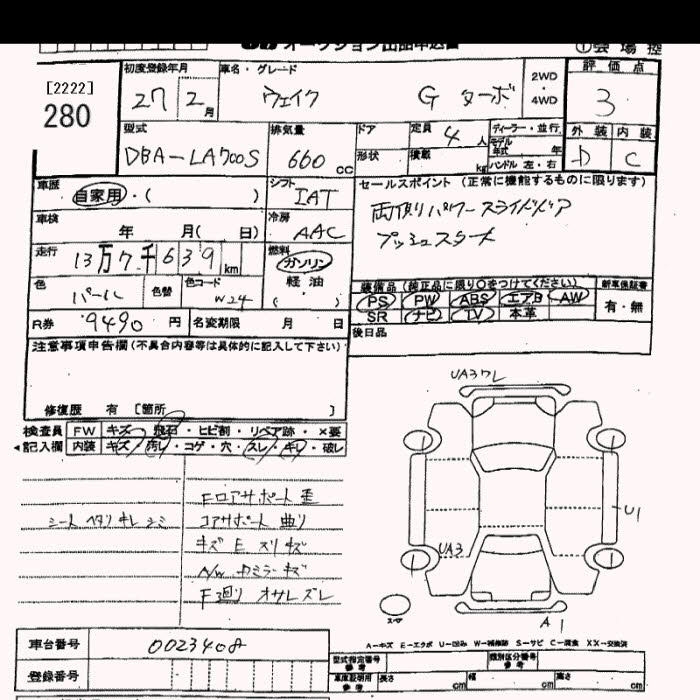 オークション出品申込書
①会場控
[2222]
280
初度登録年月
27 2月
車名・グレード
ウェイク G ターボ
2WD
・
4WD
評価点
3
外装 内装
D C
型式
DBA-LA700S
排気量
660 cc
ドア
形状
定員 4 人
積載 kg
ディーラー・並行
モデル年式 年
ハンドル 左・右
車歴
自家用・( )
シフト
IAT
セールスポイント (正常に機能するものに限ります)
両側パワースライドドア
プッシュスタート
車検
年 月( 日)
冷房
AAC
走行
13万7千639km
燃料
ガソリン
軽油
( )
色
パール
色替
色コード
W24
装備品 (純正品に限り○をつけてください)
新車保証書
PS PW ABS エアB AW
有・無
SR ナビ TV 本革
後日品
R券 9490 円
名変期限 月 日
注意事項申告欄(不具合内容等は具体的に記入して下さい)
修復歴 有 [箇所 ]
検査員 FW キズ・飛石・ヒビ割・リペア跡・×要
◀記入欄 内装 キズ・汚れ・コゲ・穴・スレ・キレ・破レ
Fロアサポート 歪
シート ヘタリ キレ シミ
コアサポート 曲り
キズ E スリキズ
A/W カミラーキズ
F廻り オサレズレ
UA3ワレ
U1
UA3
A1
スペア
A-キズ E-エクボ U-凹み W-補修跡 S-サビ C-腐食 XX-交換済
車台番号
0023408
登録番号
型式指定番号
参考
類別区分番号
参考
車庫証明用
参考
長さ cm
幅 cm
高さ cm